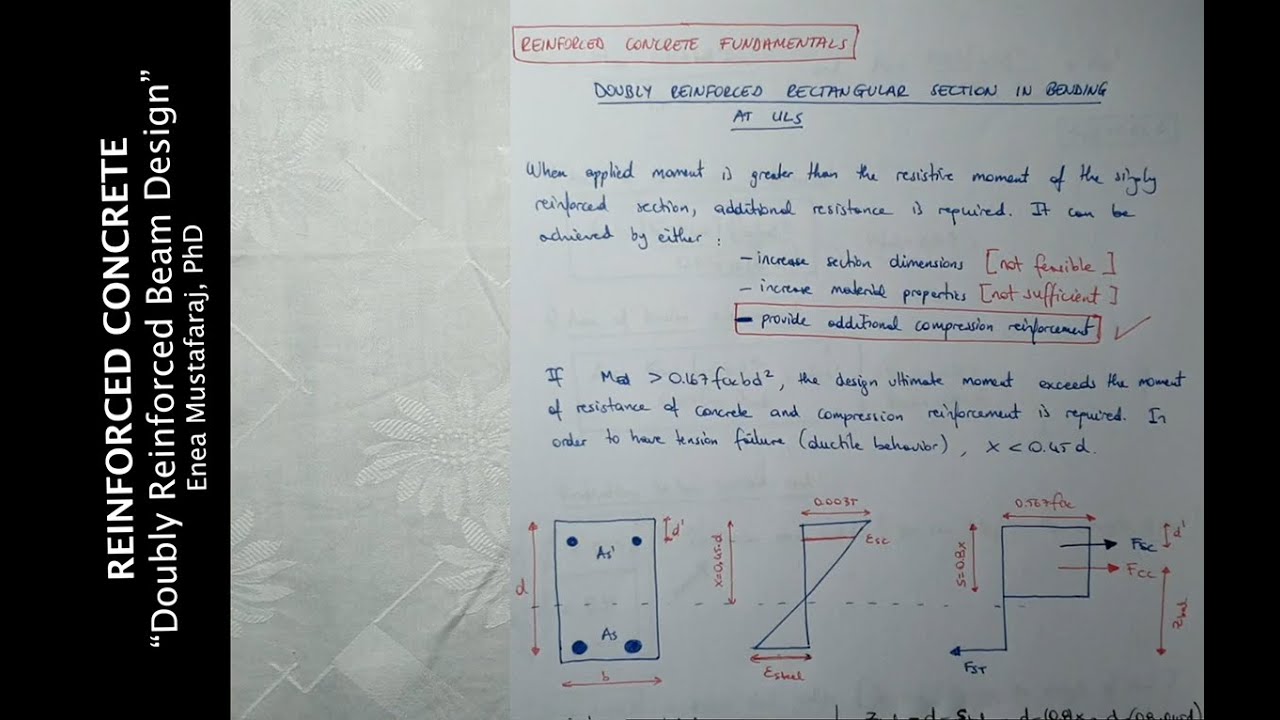 REINFORCED CONCRETE
"Doubly Reinforced Beam Design"
Enea Mustafaraj, PhD
REINFORCED CONCRETE FUNDAMENTALS
DOUBLY REINFORCED RECTANGULAR SECTION IN BENDING
AT ULS
When applied moment is greater than the resistive moment of the singly
reinforced section, additional resistance is required. It can be
achieved by either :
- increase section dimensions [not feasible]
- increase material properties [not sufficient]
- provide additional compression reinforcement ✓
If Med > 0.167 fck bd², the design ultimate moment exceeds the moment
of resistance of concrete and compression reinforcement is required. In
order to have tension failure (ductile behavior), x < 0.45 d.
0.0035
0.567fck
d
As'
d'
x=0.45·d
εsc
s=0.8x
Fsc
Fcc
d'
zbal
As
b
εsteel
FST